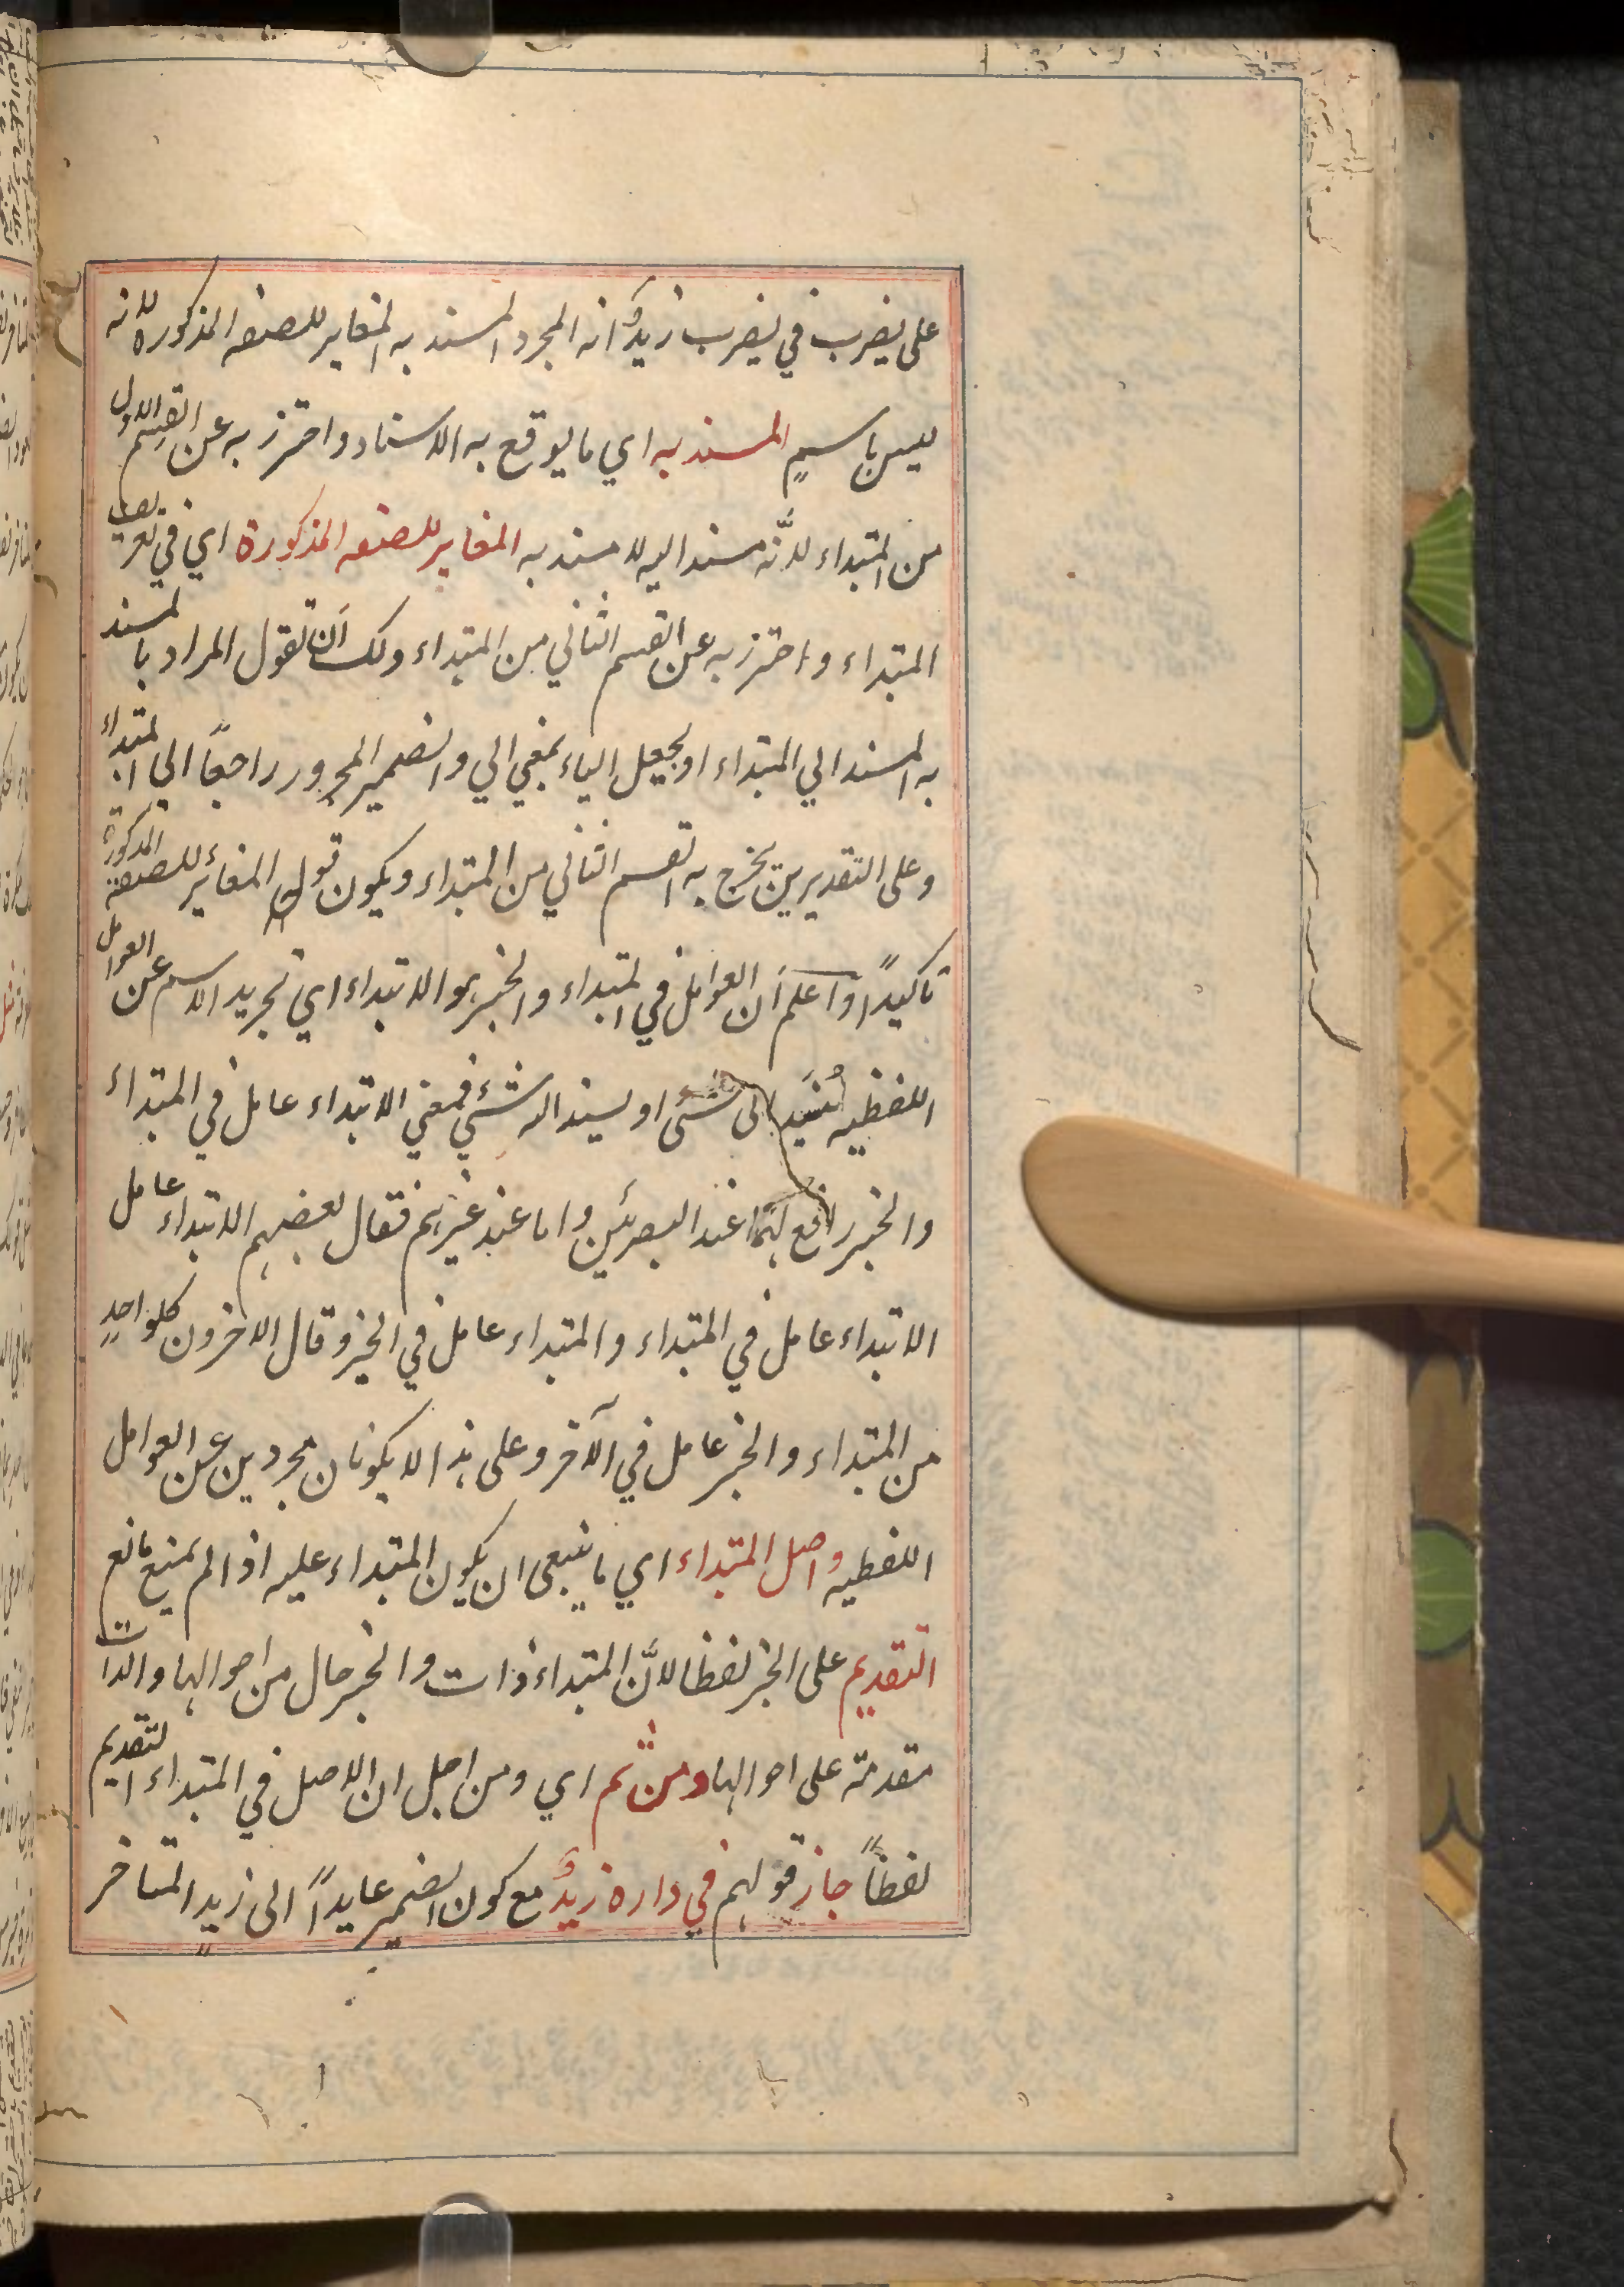 على يضرب في يضرب زيدٌ انه المجرد المسند به المغاير للصفه المذكوره لانه
ليس باسمٍ المسند به اي ما يوقع به الاسناد واحترز به عن القسم الاول
من المبتداء لانَّه مسند اليه لا مسند به المغاير للصفه المذكورة اي في تعريف
المبتداء واحترز به عن القسم الثاني من المبتداء ولك اَن تقول المراد بالمسند
به المسند الي المبتداء او يجعل الباء بمعني الي والضمير المجرور راجعاً الى المبتداء
وعلى التقديرين يخرج به القسم الثاني من المبتداء ويكون قوله المغائر للصفة المذكورة
تاكيداً واعلم اَن العوامل في المبتداء والخبر هو الابتداء اي تجريد الاسم عن العوامل
اللفظيه لُيسَند الى شئ او يسند اليه شئ فمعني الابتداء عامل في المبتداء
والخبر رافع لهما عند البصرئين واما عند غيرهم فقال بعضهم الابتداء عامل
الابتداء عامل في المبتداء والمبتداء عامل في الخبر وقال الاخرون كلواحدٍ
من المبتداء والخبر عامل في الآخر وعلى هذا لا يكونان مجردين عن العوامل
اللفظيه واصل المبتداء اي ما ينبغى ان يكون المبتداء عليه اذا لم يمنع مانع
التقديم على الخبر لفظا لانَّ المبتداء ذات والخبر حال من احوالها والذات
مقدمة على احوالها ومن ثم اي ومن اجل ان الاصل في المبتداء التقديم
لفظاً جاز قولهم في داره زيدٌ مع كون الضمير عايداً الى زيدٍ المتاخر